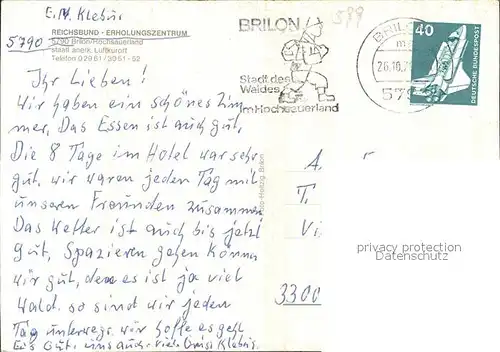 E. M. Klebur
5790
REICHSBUND - ERHOLUNGSZENTRUM
5790 Brilon/Hochsauerland
staatl. anerk. Luftkurort
Telefon 0 29 61 / 30 51 - 52
BRILON
Stadt des
Waldes
im Hochsauerland
599
BRILON
26.10.7
579
40
DEUTSCHE BUNDESPOST
Ihr Lieben!
Wir haben ein schönes Zim
mer. Das Essen ist auch gut,
Die 8 Tage im Hotel war sehr
gut, wir waren jeden Tag mit
unseren Freunden zusammen
Das Wetter ist auch bis jetzt
gut, Spazieren gehen können
wir gut, denn es ist ja viel
Wald. so sind wir jeden
Tag unterwegs. wir hoffe es geht
Euch Gut. uns auch. viele Grüße Kleburs.
A
T.
Vi
3300
privacy protection
Datenschutz